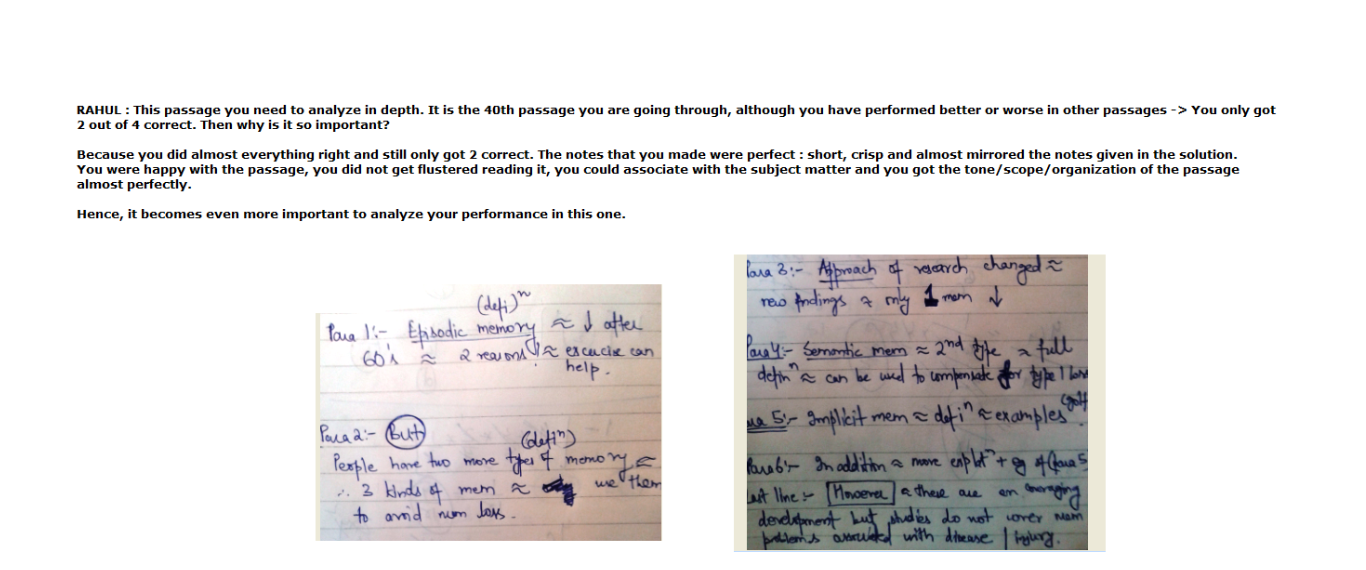 RAHUL : This passage you need to analyze in depth. It is the 40th passage you are going through, although you have performed better or worse in other passages -> You only got
2 out of 4 correct. Then why is it so important?
Because you did almost everything right and still only got 2 correct. The notes that you made were perfect : short, crisp and almost mirrored the notes given in the solution.
You were happy with the passage, you did not get flustered reading it, you could associate with the subject matter and you got the tone/scope/organization of the passage
almost perfectly.
Hence, it becomes even more important to analyze your performance in this one.
(defi)ⁿ
Para 1:- Episodic memory ≈ ↓ after
60's ≈ 2 reasons ≈ excercise can
help.
Para 2:- But (defiⁿ)
People have two more types of memory ≈
∴ 3 kinds of mem ≈ use them
to avoid mem loss.
Para 3:- Approach of research changed ≈
new findings only 1 mem ↓
Para 4:- Semantic mem ≈ 2nd type ≈ full
definⁿ ≈ can be used to compensate for type 1 loss
Para 5:- Implicit mem ≈ defiⁿ ≈ examples (golf)
Para 6:- In addition ≈ more + eg of Para 5
Last line:- However ≈ these are an emerging
development but studies do not cover mem
problems associated with disease / injury.